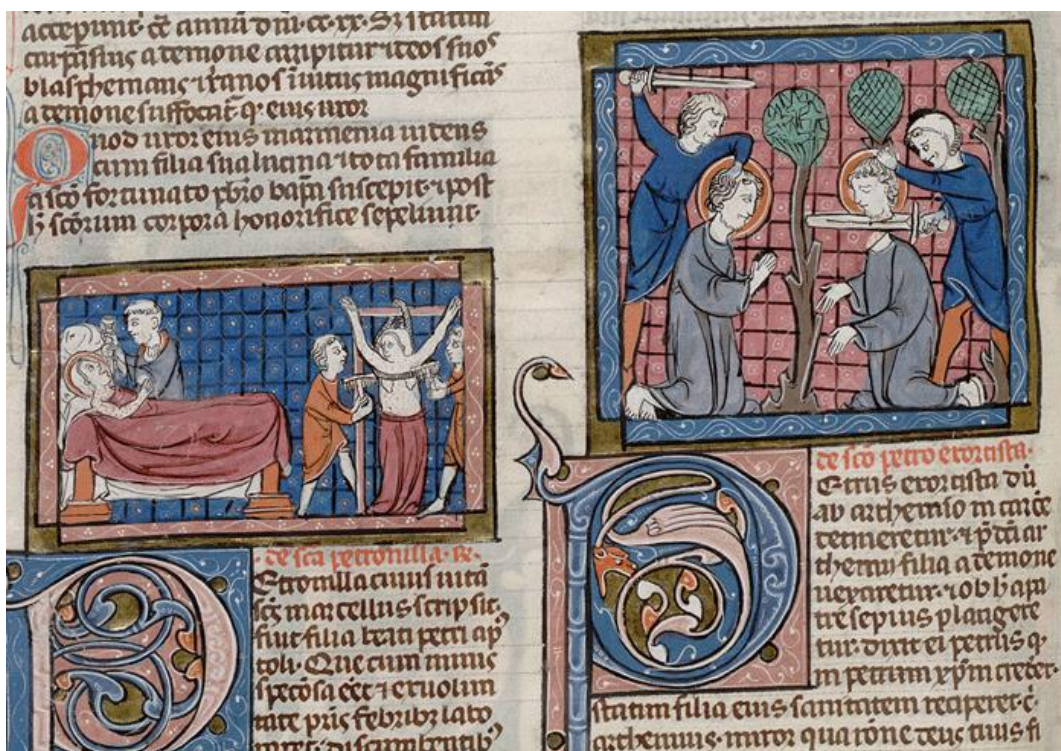 accepunt. cc annu dni. cc. xx. Set statim
carpasius a demone arripitur. et deos suos
blasphemans et xpianos inuitus magnificas
a demone suffocat.
Quod uxor eius marmenia uidens
cum filia sua lucina et tota familia
a sco fortunato pbro bapm suscepit. et post
h scorum corpora honorifice sepeliunt.
de sca petronilla. R.
Etronilla cuius uita
scs marcellus scripsit.
fuit filia beati petri apo
stoli. Que cum nimis
speciosa eet et ex uolun
tate pris febribz labo
raret. discumbentibz
de sco petro exorcista.
Etrus exorcista du
ab arthemio in carce
detineretur. et pdcti ar
themii filia a demone
uexaretur. et ob h a pa
tre sepius plangere
tur. dixit ei petrus q.
in petrum xpm crederet
statim filia eius sanitatem reciperet. c
arthemius. miror qua rone deus tuus fi